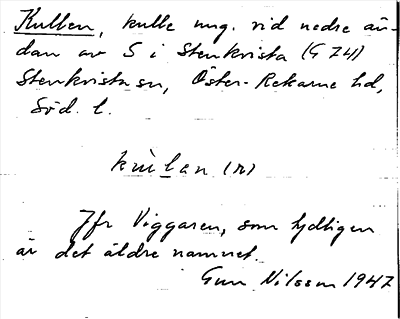 Kullen, kulle mng. vid nedre än-
dan av S i Stenkvista (G 74)
Stenkvista sn, Öster-Rekarne hd,
Söd. l.
kùlan (n)
Jfr Viggaren, som tydligen
är det äldre namnet.
Gun Nilsson 1947